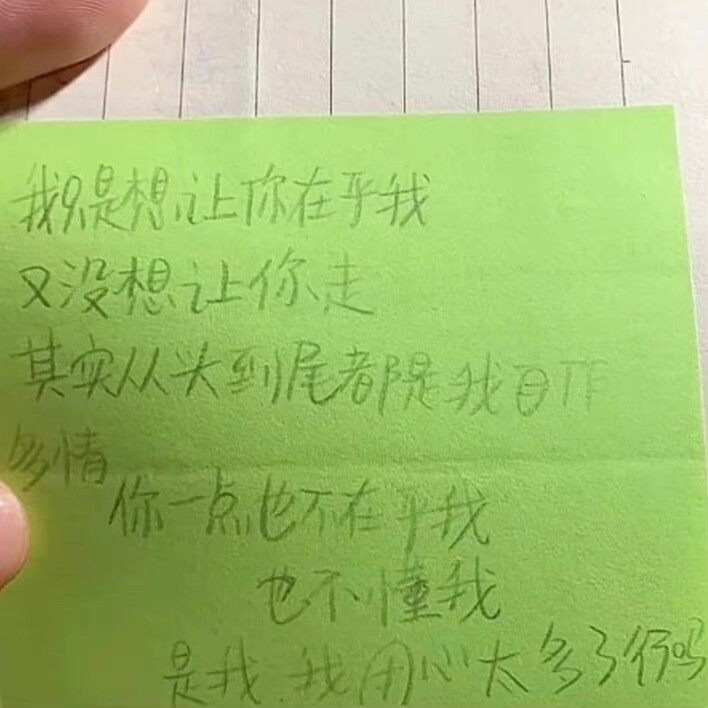 我只是想让你在乎我
又没想让你走
其实从头到尾都是我自作
多情
你一点也不在乎我
也不懂我
是我.我用心太多了行吗